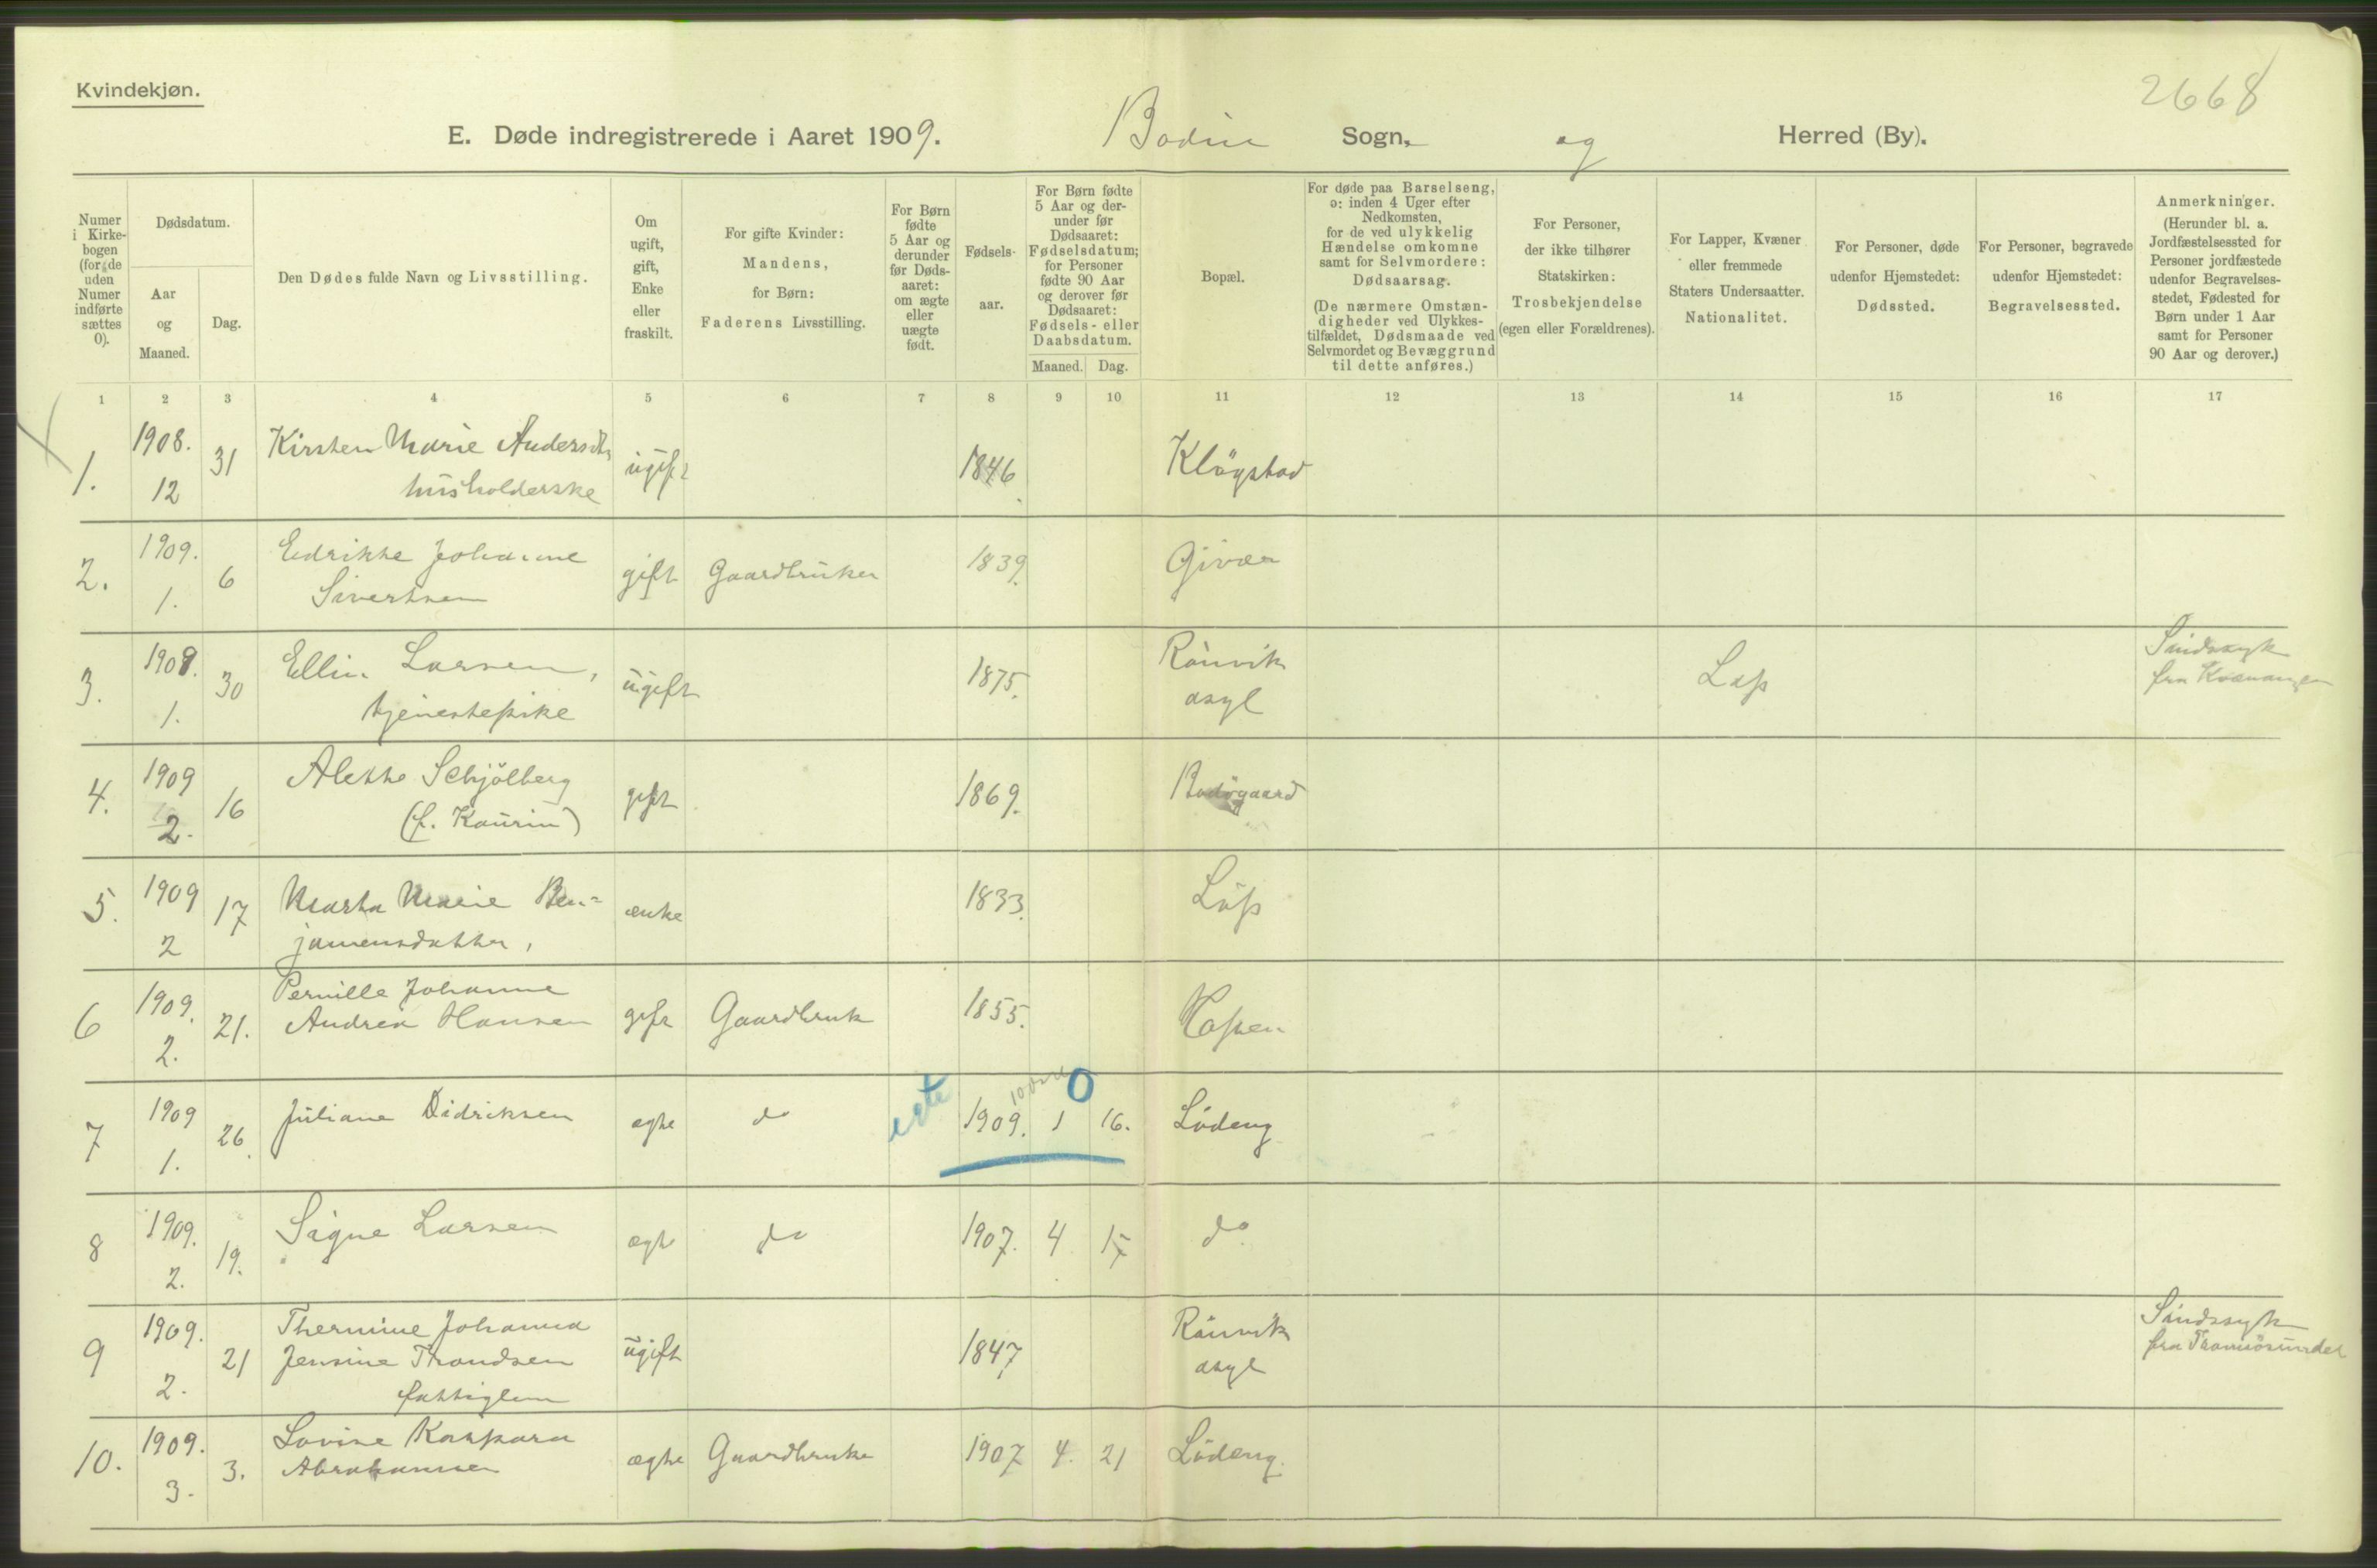 Kvindekjøn.
2668
E. Døde indregistrerede i Aaret 1909. Bodin Sogn, og Herred (By).
Numer i Kirkebogen (for de uden Numer indførte sættes 0).
Dødsdatum.
Aar og Maaned.
Dag.
Den Dødes fulde Navn og Livsstilling.
Om ugift, gift, Enke eller fraskilt.
For gifte Kvinder: Mandens, for Børn: Faderens Livsstilling.
For Børn fødte 5 Aar og derunder før Dødsaaret: om ægte eller uægte født.
Fødselsaar.
For Børn fødte 5 Aar og derunder før Dødsaaret: Fødselsdatum; for Personer fødte 90 Aar og derover før Dødsaaret: Fødsels- eller Daabsdatum.
Maaned. Dag.
Bopæl.
For døde paa Barselseng, ɔ: inden 4 Uger efter Nedkomsten, for de ved ulykkelig Hændelse omkomne samt for Selvmordere: Dødsaarsag.
(De nærmere Omstændigheder ved Ulykkestilfældet, Dødsmaade ved Selvmordet og Bevæggrund til dette anføres.)
For Personer, der ikke tilhører Statskirken: Trosbekjendelse (egen eller Forældrenes).
For Lapper, Kvæner eller fremmede Staters Undersaatter. Nationalitet.
For Personer, døde udenfor Hjemstedet: Dødssted.
For Personer, begravede udenfor Hjemstedet: Begravelsessted.
Anmerkninger.
(Herunder bl. a. Jordfæstelsessted for Personer jordfæstede udenfor Begravelsesstedet, Fødested for Børn under 1 Aar samt for Personer 90 Aar og derover.)
1 2 3 4 5 6 7 8 9 10 11 12 13 14 15 16 17
1. 1908. 12 31 Kirsten Marie Andersdtr husholderske ugift 1846 Klögstad
2. 1909. 1. 6 Edrikke Johanne Sivertsen gift Gaardbruker 1839. Givær
3. 1909. 1. 30 Ellin Larsen, tjenestepike ugift 1875. Rönvik asyl Lap Sindssyk fra Kvænangen
4. 1909 2. 16 Alette Schjölberg (f. Kaurin) gift 1869. Bodögaard
5. 1909 2 17 Marta Marie Benjamensdatter, enke 1833. Löp
6 1909. 2. 21. Pernille Johanne Andrea Hansen gift Gaardbruk 1855. Kopen
7 1909 1. 26. Juliane Didriksen egte do egte 1909. 1 16. Lödeng
0
8 1909. 2. 19. Signe Larsen egte do 1907. 4 15 do
9 1909. 2. 21 Thermine Johanna Jensine Trondsen fattiglem ugift 1847 Rönvik asyl Sindssyk fra Tromsösundet
10. 1909. 3. 3. Lovise Kaspara Abrahamsen egte Gaardbruke 1907 4. 21 Lödeng.